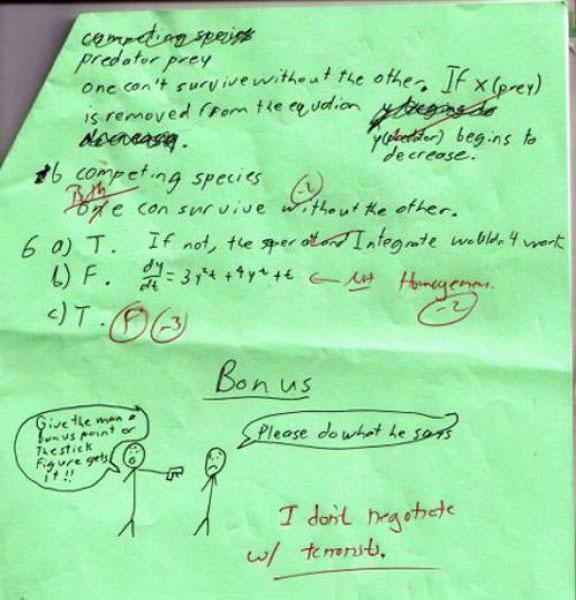 competing species
predator prey
one can't survive without the other. If x (prey)
is removed from the equation y begins to
decrease. y (predator) begins to
decrease.
b competing species
Both
one can survive without the other. -2
6 a) T. If not, the operator Integrate wouldn't work
b) F. dy/dt = 3y²t + 4y⁴ + t ← Not Homogeneous.
-2
c) T. F -3
Bonus
Give the man a
bonus point or
The stick
Figure gets
it!!
Please do what he says
I don't negotiate
w/ terrorists.